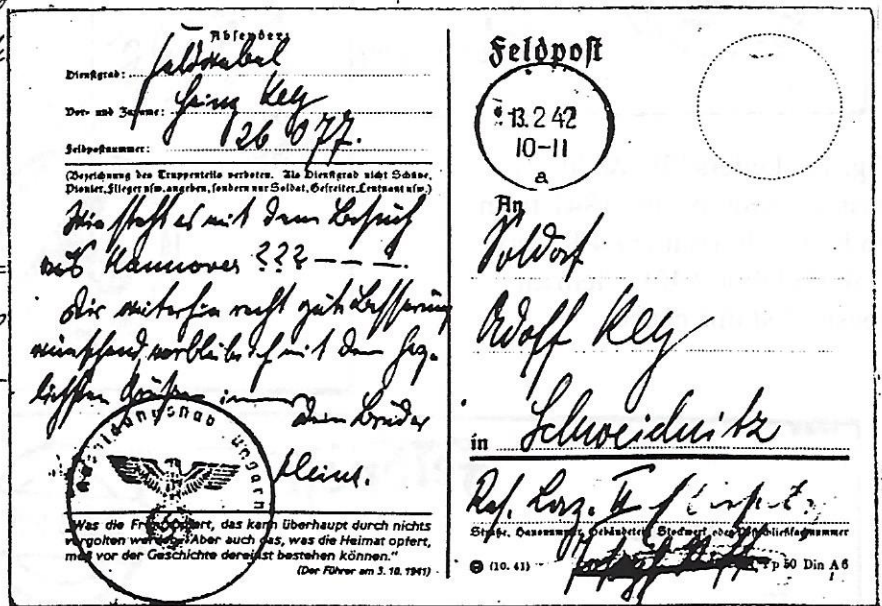 Absender:
Dienstgrad: Feldwebel
Vor- und Zuname: Heinz Key
Feldpostnummer: 26 077.
(Bezeichnung des Truppenteils verboten. Als Dienstgrad nicht Schütze,
Pionier, Flieger usw. angeben, sondern nur Soldat, Gefreiter, Leutnant usw.)
Wie steht es mit dem Besuch
aus Hannover ??? – – – .
Dir weiterhin recht gute Besserung
wünschend, verbleibe ich mit den herz-
lichsten Grüßen immer
Dein Bruder
Heinz.
Ausbildungsstab Ungarn
„Was die Front opfert, das kann überhaupt durch nichts
vergolten werden. Aber auch das, was die Heimat opfert,
muß vor der Geschichte dereinst bestehen können."
(Der Führer am 3. 10. 1941)
Feldpost
13.2 42
10-11
a
An
Soldat
Adolf Key
in Schweidnitz
Res. Laz. II
Straße, Hausnummer, Gebäudeteil, Stockwerk oder Postschließfachnummer
(10. 41)
Din A 6